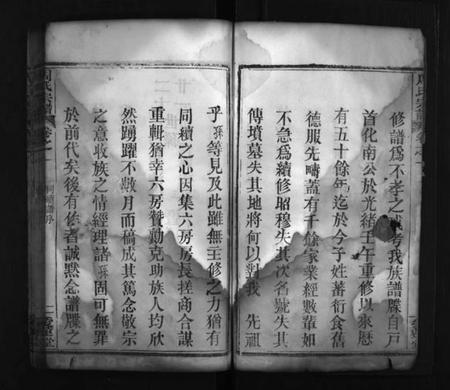 修譜爲不孝之
考我族譜牒自戸
首化南公於光緒壬午重修以來歷
有五十餘年迄於今子姓蕃衍食舊
德服先疇蓋有千餘家業經數輩如
不急爲續修昭穆失其次名號失其
傳墳墓失其地將何以對我 先祖
乎 等見及此雖無主修之力猶有
同續之心因集六房房長搓商合謀
重輯猶幸六房贊勷克助族人均欣
然踴躍不數月而稿成其篤念敬宗
之意收族之情經理諸 固可無罪
於前代矣後有作者誠默念譜牒之
周氏宗譜
卷之一